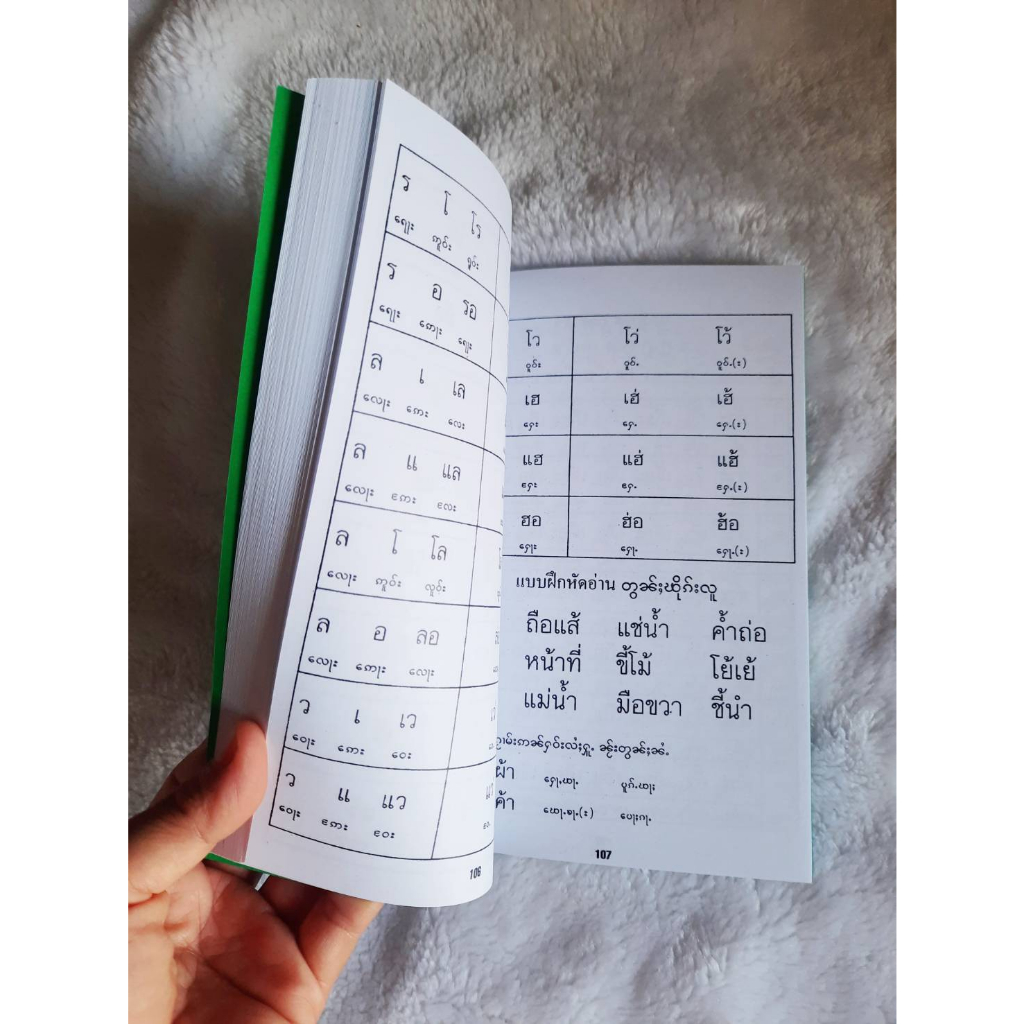 ร โ โร
ရေႃး ဢူဝ်း ရူဝ်း
ร อ รอ
ရေႃး ဢေႃး ရေႃး
ล เ เล
လေႃး ဢေး လေး
ล แ แล
လေႃး ဢႄး လႄး
ล โ โล
လေႃး ဢူဝ်း လူဝ်း
ล อ ลอ
လေႃး ဢေႃး လေႃး
ว เ เว
ဝေႃး ဢေး ဝေး
ว แ แว
ဝေႃး ဢႄး ဝႄး
106
โว โว่ โว้
ဝူဝ်း ဝူဝ်ႉ ဝူဝ်ႉ(း)
เฮ เฮ่ เฮ้
ႁေး ႁေႉ ႁေႉ(း)
แฮ แฮ่ แฮ้
ႁႄး ႁႄႉ ႁႄႉ(း)
ฮอ ฮ่อ ฮ้อ
ႁေႃး ႁေႃႉ ႁေႃႉ(း)
แบบฝึกหัดอ่าน တွၼ်ႈၽိုၵ်းလူ
ถือแส้ แช่น้ำ ค้ำถ่อ
หน้าที่ ขี้โม้ โย้เย้
แม่น้ำ มือขวา ชี้นำ
ผ้า
ค้า
107